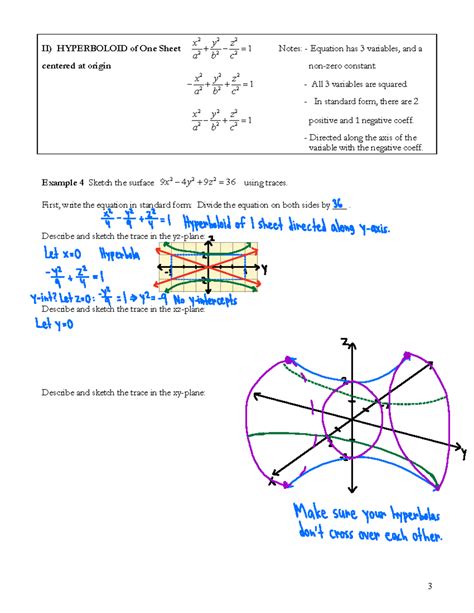 II) HYPERBOLOID of One Sheet x²/a² + y²/b² - z²/c² = 1 Notes: - Equation has 3 variables, and a
centered at origin non-zero constant
-x²/a² + y²/b² + z²/c² = 1 - All 3 variables are squared
- In standard form, there are 2
x²/a² - y²/b² + z²/c² = 1 positive and 1 negative coeff.
- Directed along the axis of the
variable with the negative coeff.
Example 4 Sketch the surface 9x² - 4y² + 9z² = 36 using traces.
First, write the equation in standard form: Divide the equation on both sides by 36.
x²/4 - y²/9 + z²/4 = 1 Hyperboloid of 1 sheet directed along y-axis.
Describe and sketch the trace in the yz-plane:
Let x=0 Hyperbola
-y²/9 + z²/4 = 1
y-int? Let z=0: -y²/9 = 1 ⇒ y² = -9 No y-intercepts
Describe and sketch the trace in the xz-plane:
Let y=0
Describe and sketch the trace in the xy-plane:
z
y
x
z
y
Make sure your hyperbolas
don't cross over each other.
3